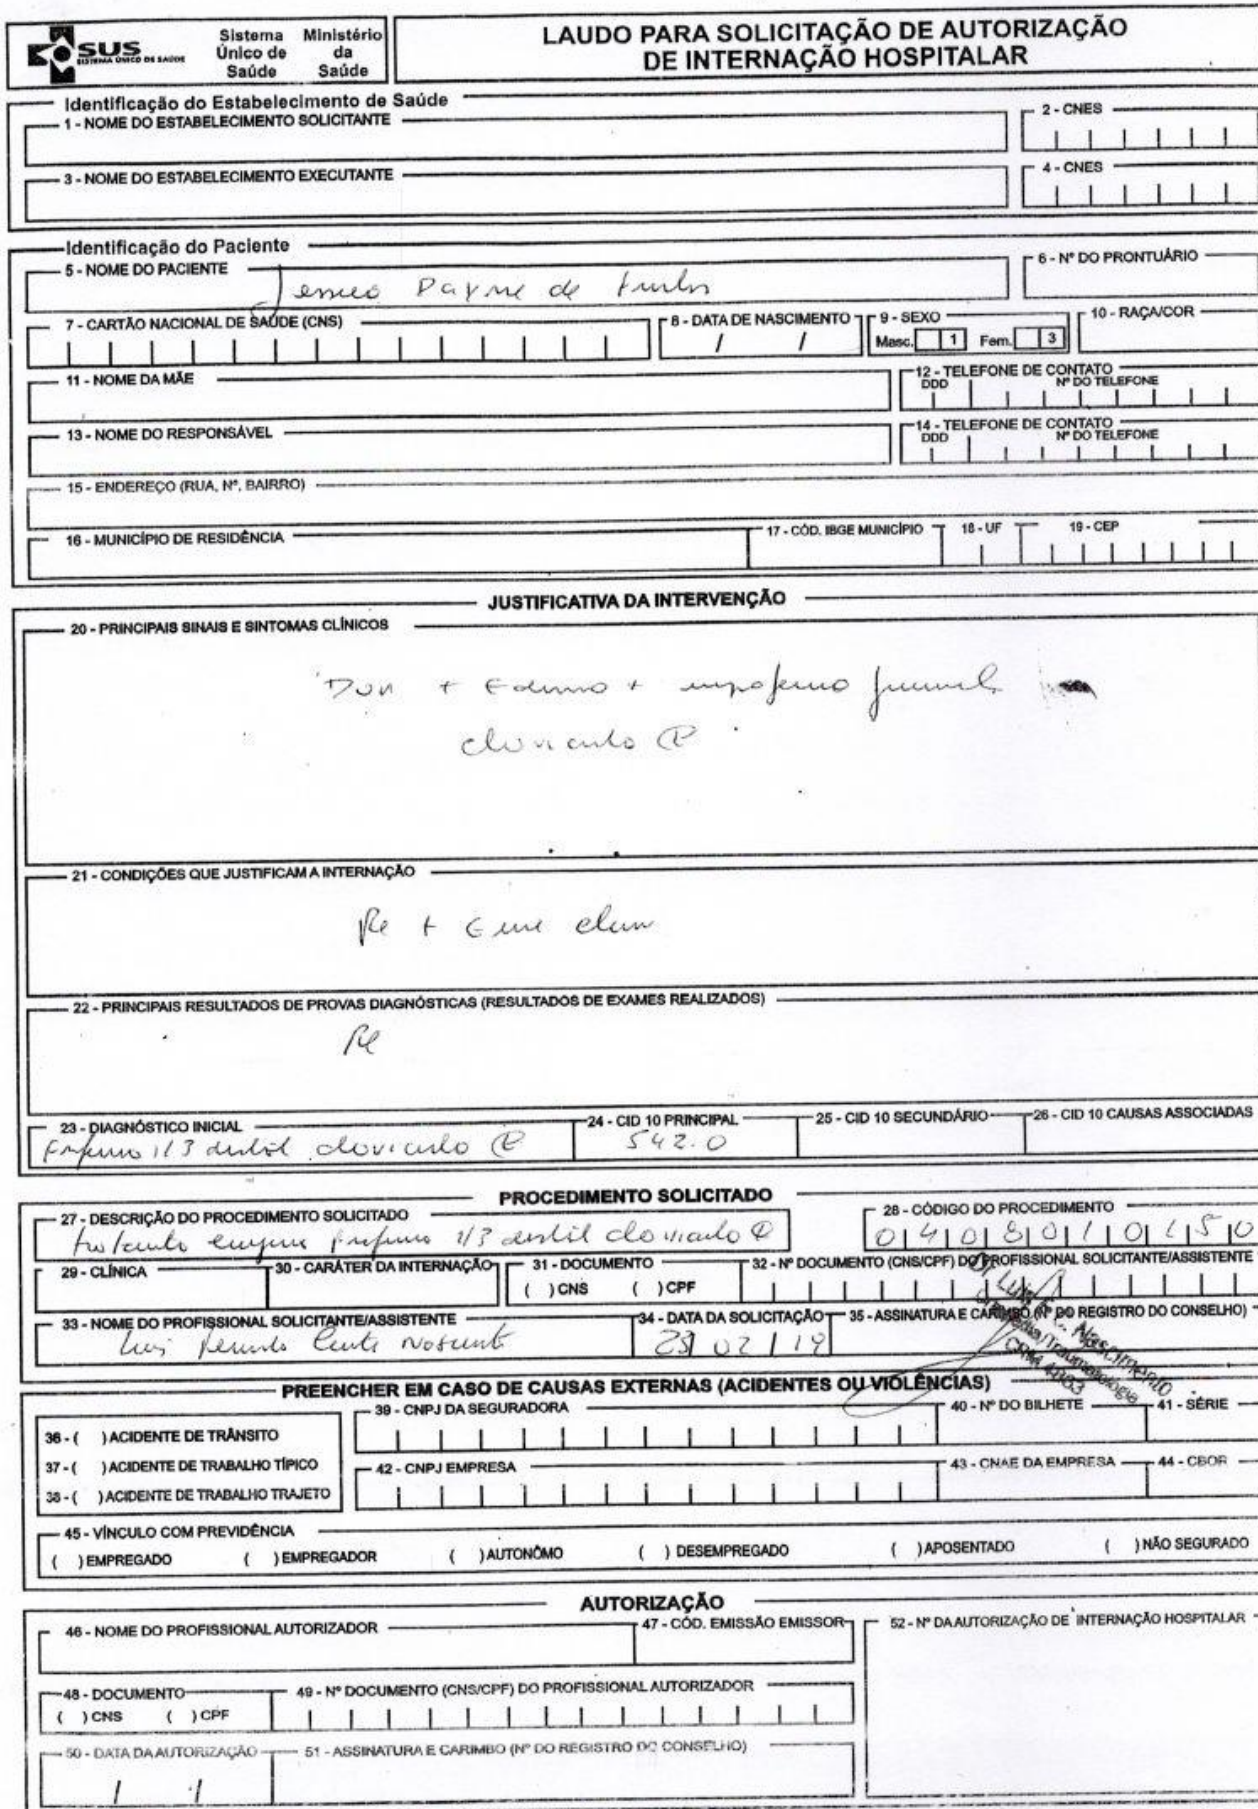 SUS
SISTEMA ÚNICO DE SAÚDE
Sistema Único de Saúde
Ministério da Saúde
LAUDO PARA SOLICITAÇÃO DE AUTORIZAÇÃO
DE INTERNAÇÃO HOSPITALAR
Identificação do Estabelecimento de Saúde
1 - NOME DO ESTABELECIMENTO SOLICITANTE
2 - CNES
3 - NOME DO ESTABELECIMENTO EXECUTANTE
4 - CNES
Identificação do Paciente
5 - NOME DO PACIENTE
de
6 - Nº DO PRONTUÁRIO
7 - CARTÃO NACIONAL DE SAÚDE (CNS)
8 - DATA DE NASCIMENTO
/ /
9 - SEXO
Masc. 1 Fem. 3
10 - RAÇA/COR
11 - NOME DA MÃE
12 - TELEFONE DE CONTATO
DDD Nº DO TELEFONE
13 - NOME DO RESPONSÁVEL
14 - TELEFONE DE CONTATO
DDD Nº DO TELEFONE
15 - ENDEREÇO (RUA, Nº, BAIRRO)
16 - MUNICÍPIO DE RESIDÊNCIA
17 - CÓD. IBGE MUNICÍPIO
18 - UF
19 - CEP
JUSTIFICATIVA DA INTERVENÇÃO
20 - PRINCIPAIS SINAIS E SINTOMAS CLÍNICOS
Dor + Edema +
clavicula
21 - CONDIÇÕES QUE JUSTIFICAM A INTERNAÇÃO
22 - PRINCIPAIS RESULTADOS DE PROVAS DIAGNÓSTICAS (RESULTADOS DE EXAMES REALIZADOS)
23 - DIAGNÓSTICO INICIAL
1/3 distal clavicula
24 - CID 10 PRINCIPAL
S42.0
25 - CID 10 SECUNDÁRIO
26 - CID 10 CAUSAS ASSOCIADAS
PROCEDIMENTO SOLICITADO
27 - DESCRIÇÃO DO PROCEDIMENTO SOLICITADO
1/3 distal clavicula
28 - CÓDIGO DO PROCEDIMENTO
0408010150
29 - CLÍNICA
30 - CARÁTER DA INTERNAÇÃO
31 - DOCUMENTO
( ) CNS ( ) CPF
32 - Nº DOCUMENTO (CNS/CPF) DO PROFISSIONAL SOLICITANTE/ASSISTENTE
33 - NOME DO PROFISSIONAL SOLICITANTE/ASSISTENTE
Luis
34 - DATA DA SOLICITAÇÃO
02 / 19
35 - ASSINATURA E CARIMBO (Nº DO REGISTRO DO CONSELHO)
Nascimento
Traumatologia
CRM
PREENCHER EM CASO DE CAUSAS EXTERNAS (ACIDENTES OU VIOLÊNCIAS)
36 - ( ) ACIDENTE DE TRÂNSITO
37 - ( ) ACIDENTE DE TRABALHO TÍPICO
38 - ( ) ACIDENTE DE TRABALHO TRAJETO
39 - CNPJ DA SEGURADORA
40 - Nº DO BILHETE
41 - SÉRIE
42 - CNPJ EMPRESA
43 - CNAE DA EMPRESA
44 - CBOR
45 - VÍNCULO COM PREVIDÊNCIA
( ) EMPREGADO ( ) EMPREGADOR ( ) AUTONÔMO ( ) DESEMPREGADO ( ) APOSENTADO ( ) NÃO SEGURADO
AUTORIZAÇÃO
46 - NOME DO PROFISSIONAL AUTORIZADOR
47 - CÓD. EMISSÃO EMISSOR
52 - Nº DA AUTORIZAÇÃO DE INTERNAÇÃO HOSPITALAR
48 - DOCUMENTO
( ) CNS ( ) CPF
49 - Nº DOCUMENTO (CNS/CPF) DO PROFISSIONAL AUTORIZADOR
50 - DATA DA AUTORIZAÇÃO
/ /
51 - ASSINATURA E CARIMBO (Nº DO REGISTRO DO CONSELHO)